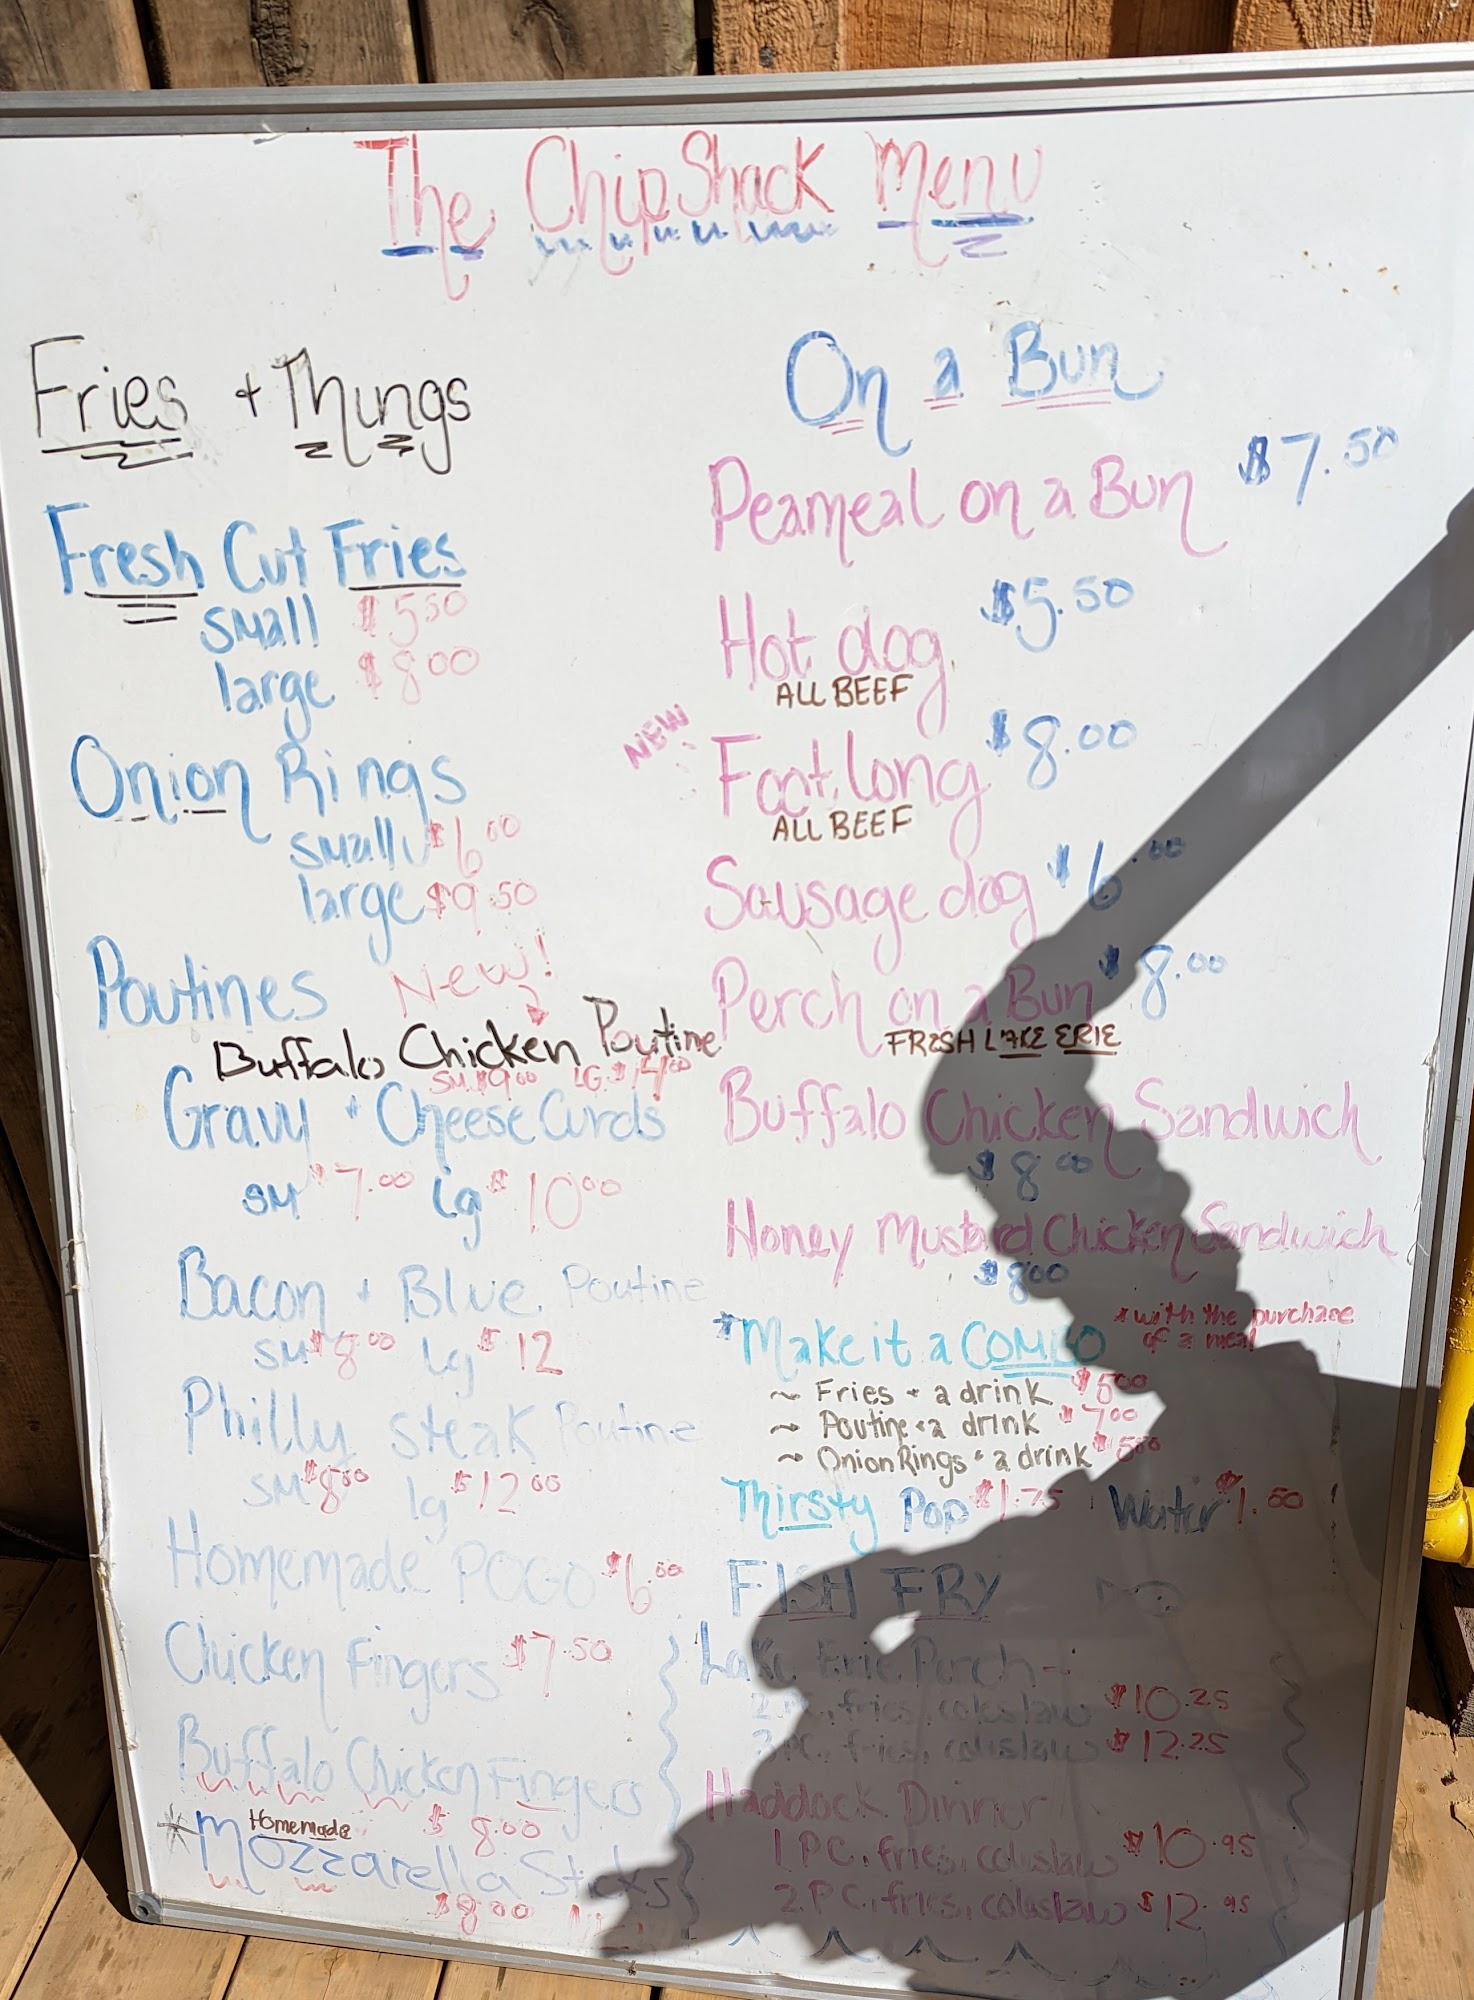 The Chip Shack Menu
Fries + Things
Fresh Cut Fries
small $5.50
large $8.00
Onion Rings
small $6.00
large $9.50
Poutines New!
Buffalo Chicken Poutine
SM. $9.00 LG. $14.00
Gravy + Cheese Curds
SM $7.00 lg $10.00
Bacon + Blue Poutine
SM $8.00 lg $12
Philly Steak Poutine
SM $8.00 lg $12.00
Homemade POGO $6.00
Chicken Fingers $7.50
Buffalo Chicken Fingers
$8.00
* Homemade
Mozzarella Sticks
$8.00
On a Bun
Peameal on a Bun $7.50
Hot dog $5.50
ALL BEEF
NEW
Foot long $8.00
ALL BEEF
Sausage dog $6.00
Perch on a Bun $8.00
FRESH LAKE ERIE
Buffalo Chicken Sandwich
$8.00
Honey Mustard Chicken Sandwich
$8.00
*Make it a COMBO *with the purchase
of a meal
~ Fries + a drink $5.00
~ Poutine + a drink $7.00
~ Onion Rings + a drink $5.50
Thirsty Pop $1.75 Water $1.50
FISH FRY
Lake Erie Perch -
2 PC, fries, coleslaw $10.25
3 PC, fries, coleslaw $12.25
Haddock Dinner
1 PC, fries, coleslaw $10.95
2 PC, fries, coleslaw $12.95